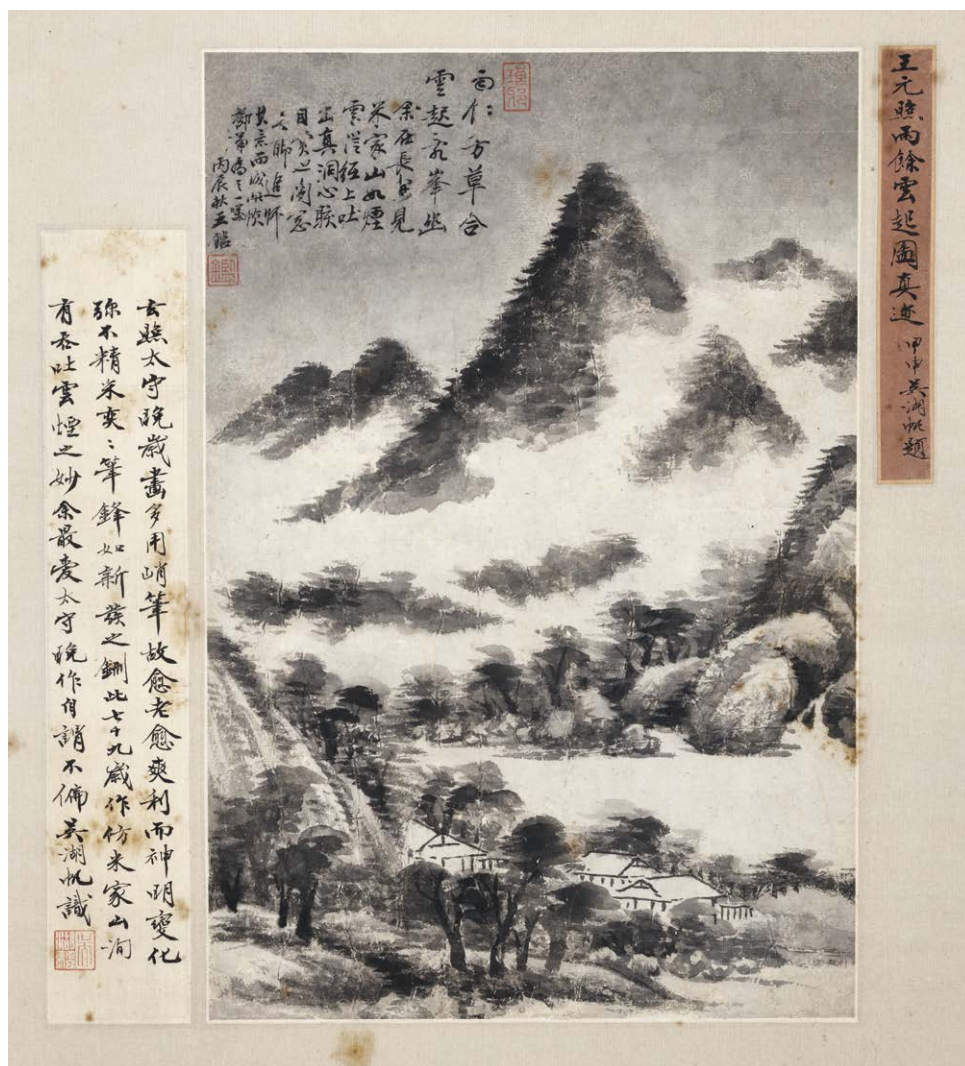 王元照雨餘雲起圖真迹 甲申吳湖帆題
雨芳草合
雲起亂峯幽
余在長安見
米家山如煙
雲從紙上吐
出真洞心駭
目
其意而成此
丙辰秋王鑑
玄照太守晚歲畫多用峭筆故愈老愈爽利而神明變化
弥不精采奕〻筆鋒如新發之硎此七十九歲作仿米家山洵
有吞吐雲煙之妙余最愛太守晚作自不吳湖帆識